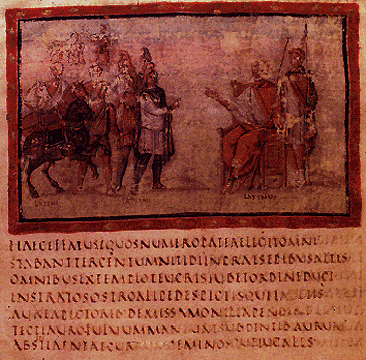 LATINUS
HAECEFFATUSEQUOSNUMEROPATERELIGITOMNI
STABANTTERCENTUMNITIDIINPRAESEPIBUSALTIS
OMNIBUSEXTEMPLOTEUCRISIUBETORDINEDUCI
INSTRATOSOSTROALIPEDESPICTISQ
AUREAPECTORIBDEMISSAMONILIAPENDENT
TECTIAUROFULUUMMANDUNTSUBDENTIBAURUM
ABSENTIAENEAE GEMINOSQUEIUGALES